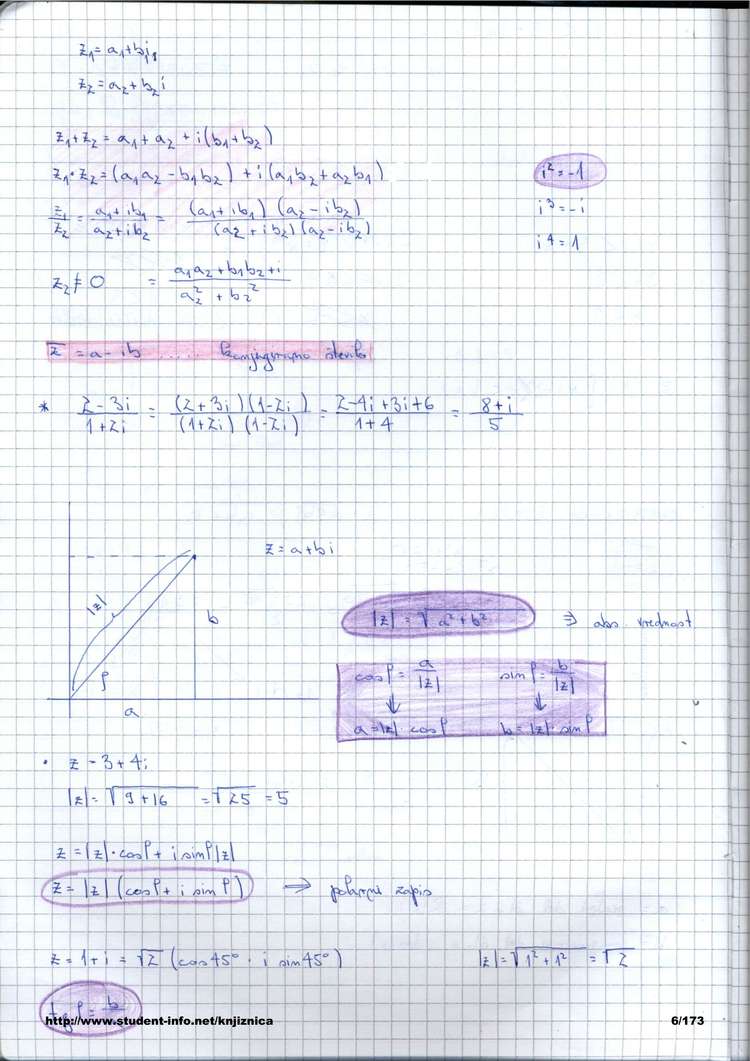 z₁ = a₁ + bi₁
z₂ = a₂ + b₂i
z₁ + z₂ = a₁ + a₂ + i(b₁ + b₂)
z₁ · z₂ = (a₁a₂ - b₁b₂) + i(a₁b₂ + a₂b₁)
i² = -1
z₁/z₂ = (a₁ + ib₁)/(a₂ + ib₂) = (a₁ + ib₁)(a₂ - ib₂)/(a₂ + ib₂)(a₂ - ib₂)
i³ = -i
i⁴ = 1
z₂ ≠ 0 = (a₁a₂ + b₁b₂ + i)/(a₂² + b₂²)
z̅ = a - ib ..... konjugirano število
* (2 - 3i)/(1 + 2i) = (2 + 3i)(1 - 2i)/(1 + 2i)(1 - 2i) = (2 - 4i + 3i + 6)/(1 + 4) = (8 + i)/5
z = a + bi
|z|
b
|z| = √(a² + b²) ⇒ abs. vrednost
cos φ = a/|z| sin φ = b/|z|
φ
a
↓ ↓
a = |z| cos φ b = |z| · sin φ
• z - 3 + 4i
|z| = √(9 + 16) = √25 = 5
z = |z| · cos φ + i sin φ |z|
z = |z| (cos φ + i sin φ) ⇒ polarni zapis
z = 1 + i = √2 (cos 45° · i sin 45°) |z| = √(1² + 1²) = √2
tg φ = b
http://www.student-info.net/knjiznica 6/173